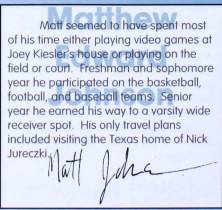 Matthew
Edward
Johnson
Matt seemed to have spent most
of his time either playing video games at
Joey Kiesler's house or playing on the
field or court. Freshman and sophomore
year he participated on the basketball,
football, and baseball teams. Senior
year he earned his way to a varsity wide
receiver spot. His only travel plans
included visiting the Texas home of Nick
Jureczki.
Matt